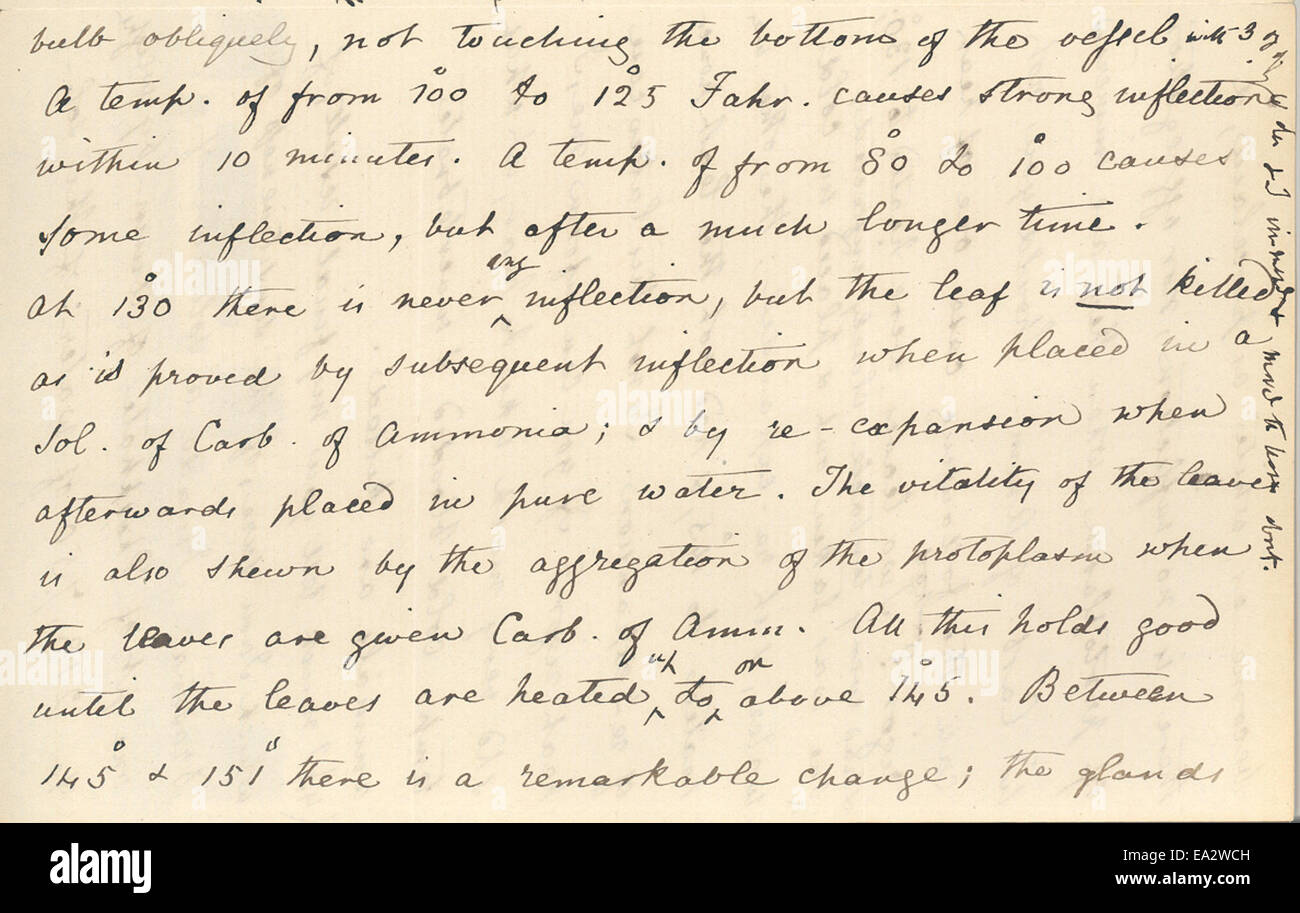 bulb obliquely, not touching the bottom of the vessel with 3 of
A temp. of from 100° to 125° Fahr. causes strong inflection
within 10 minutes. A temp. of from 80° to 100° causes
some inflection, but after a much longer time.
At 130° there is never any inflection, but the leaf is not killed
as is proved by subsequent inflection when placed in a
Sol. of Carb. of Ammonia; & by re-expansion when
afterwards placed in pure water. The vitality of the leaves
is also shewn by the aggregation of the protoplasm when
the leaves are given Carb. of Amm. All this holds good
until the leaves are heated up to or above 145°. Between
145° & 151° there is a remarkable change; the glands
& I
alamy
Image ID: EA2WCH
www.alamy.com